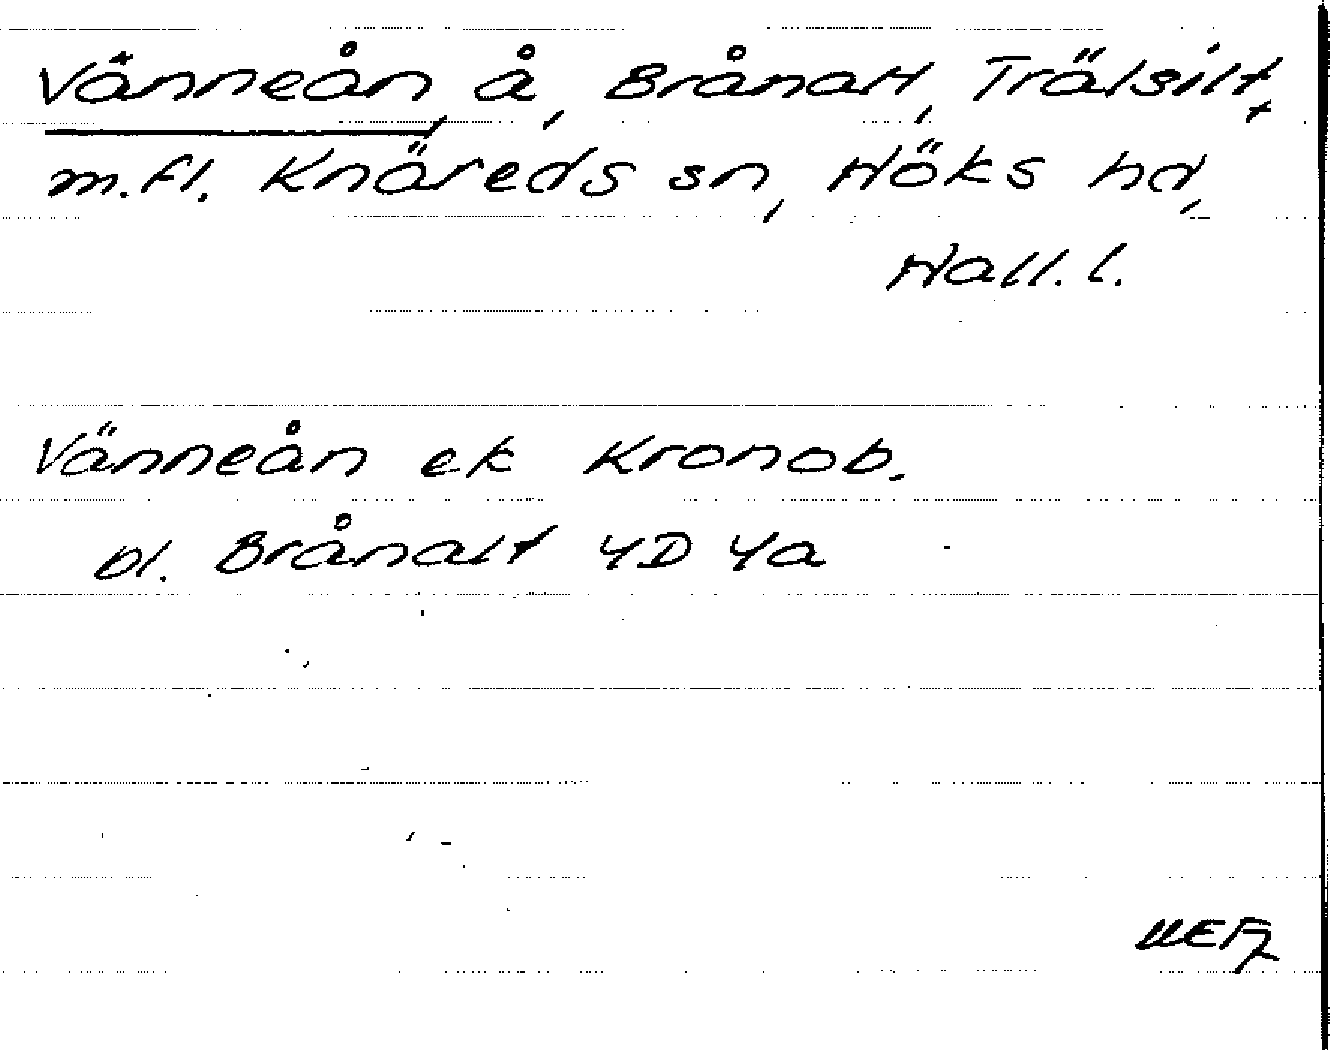 Vänneån, å, Brånalt, Trälsilt,
m.fl. Knäreds sn, Höks hd,
Hall. l.
Vänneån ek Kronob.
bl. Brånalt 4D 4a